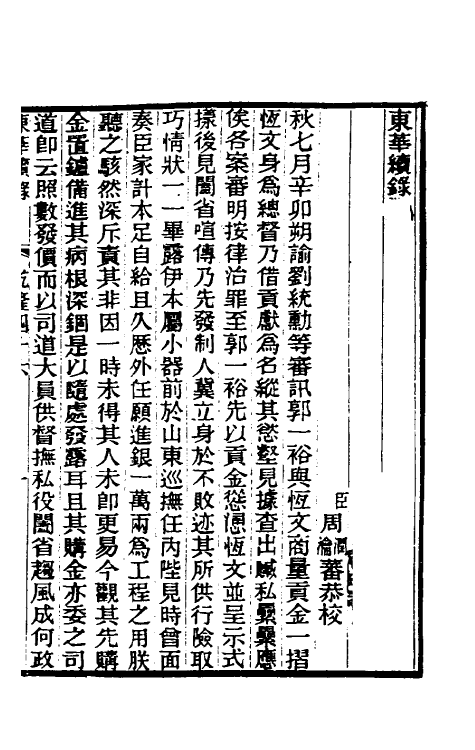 東華續錄
臣周潤蕃恭校
秋七月辛卯朔諭劉統勳等審訊郭一裕與恆文商量貢金一摺
恆文身爲總督乃借貢獻爲名縱其慾壑見據查出贓私纍纍應
俟各案審明按律治罪至郭一裕先以貢金慫慂恆文並呈示式
樣後見闔省喧傳乃先發制人冀立身於不敗迹其所供行險取
巧情狀一一畢露伊本屬小器前於山東巡撫任內陛見時曾面
奏臣家計本足自給且久歷外任願進銀一萬兩爲工程之用朕
聽之駭然深斥責其非因一時未得其人未卽更易今觀其先購
金置鑪備進其病根深錮是以隨處發露耳且其購金亦委之司
道卽云照數發價而以司道大員供督撫私役闔省趨風成何政
東華續錄